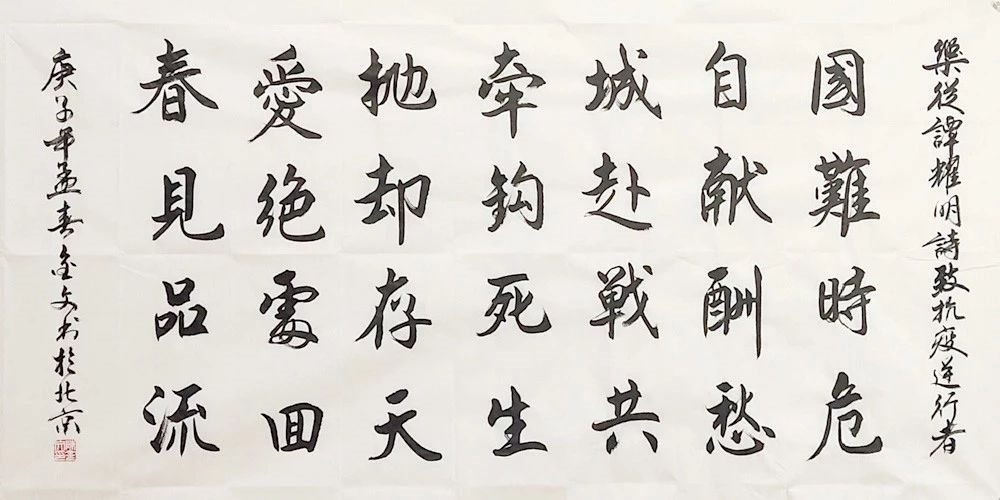 樂從譚耀明詩致抗疫逆行者
國難時危
自献酬愁
城赴戦共
牵鈎死生
抛却存天
愛绝處回
春見品流
庚子年孟春金文书於北京